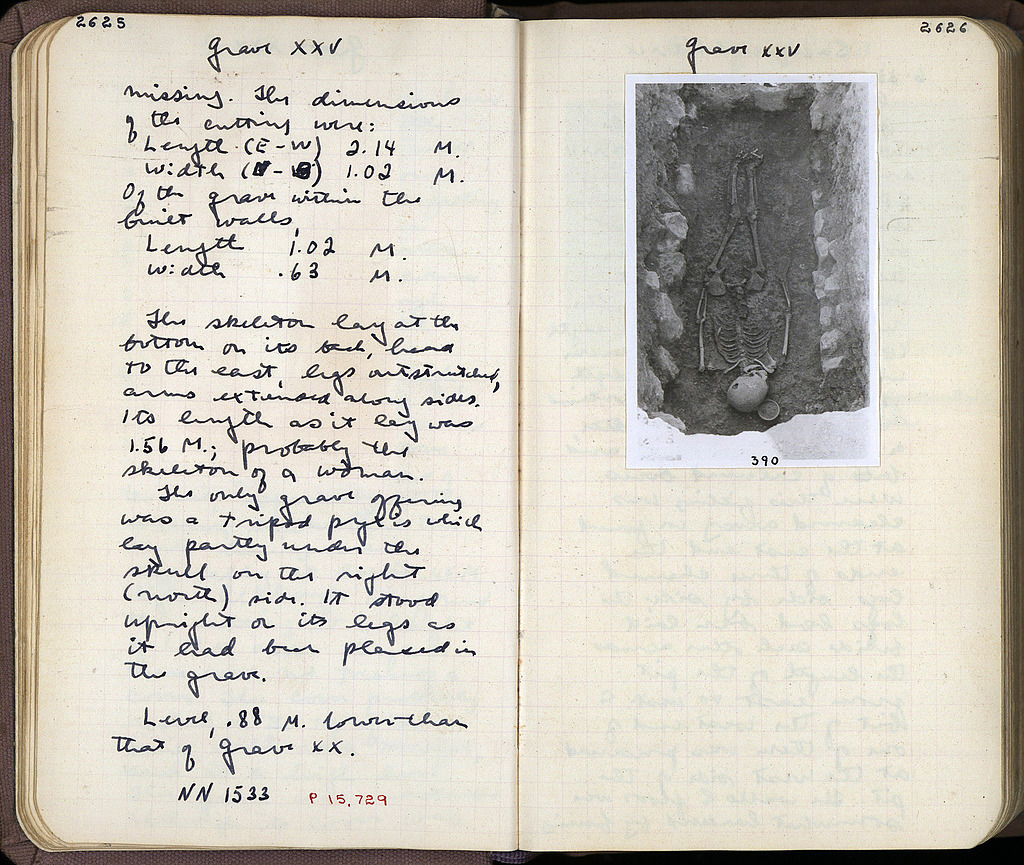 2625
Grave XXV
missing. The dimensions
of the cutting were:
Length (E-W) 2.14 M.
Width (N-S) 1.02 M.
Of the grave within the
built walls,
Length 1.02 M.
Width .63 M.
The skeleton lay at the
bottom on its back, head
to the east, legs outstretched,
arms extended along sides.
Its length as it lay was
1.56 M.; probably the
skeleton of a woman.
The only grave offering
was a tripod pyxis which
lay partly under the
skull on the right
(north) side. It stood
upright on its legs as
it had been placed in
the grave.
Level, .88 M. lower than
that of grave XX.
NN 1533 P 15,729
2626
Grave XXV
390